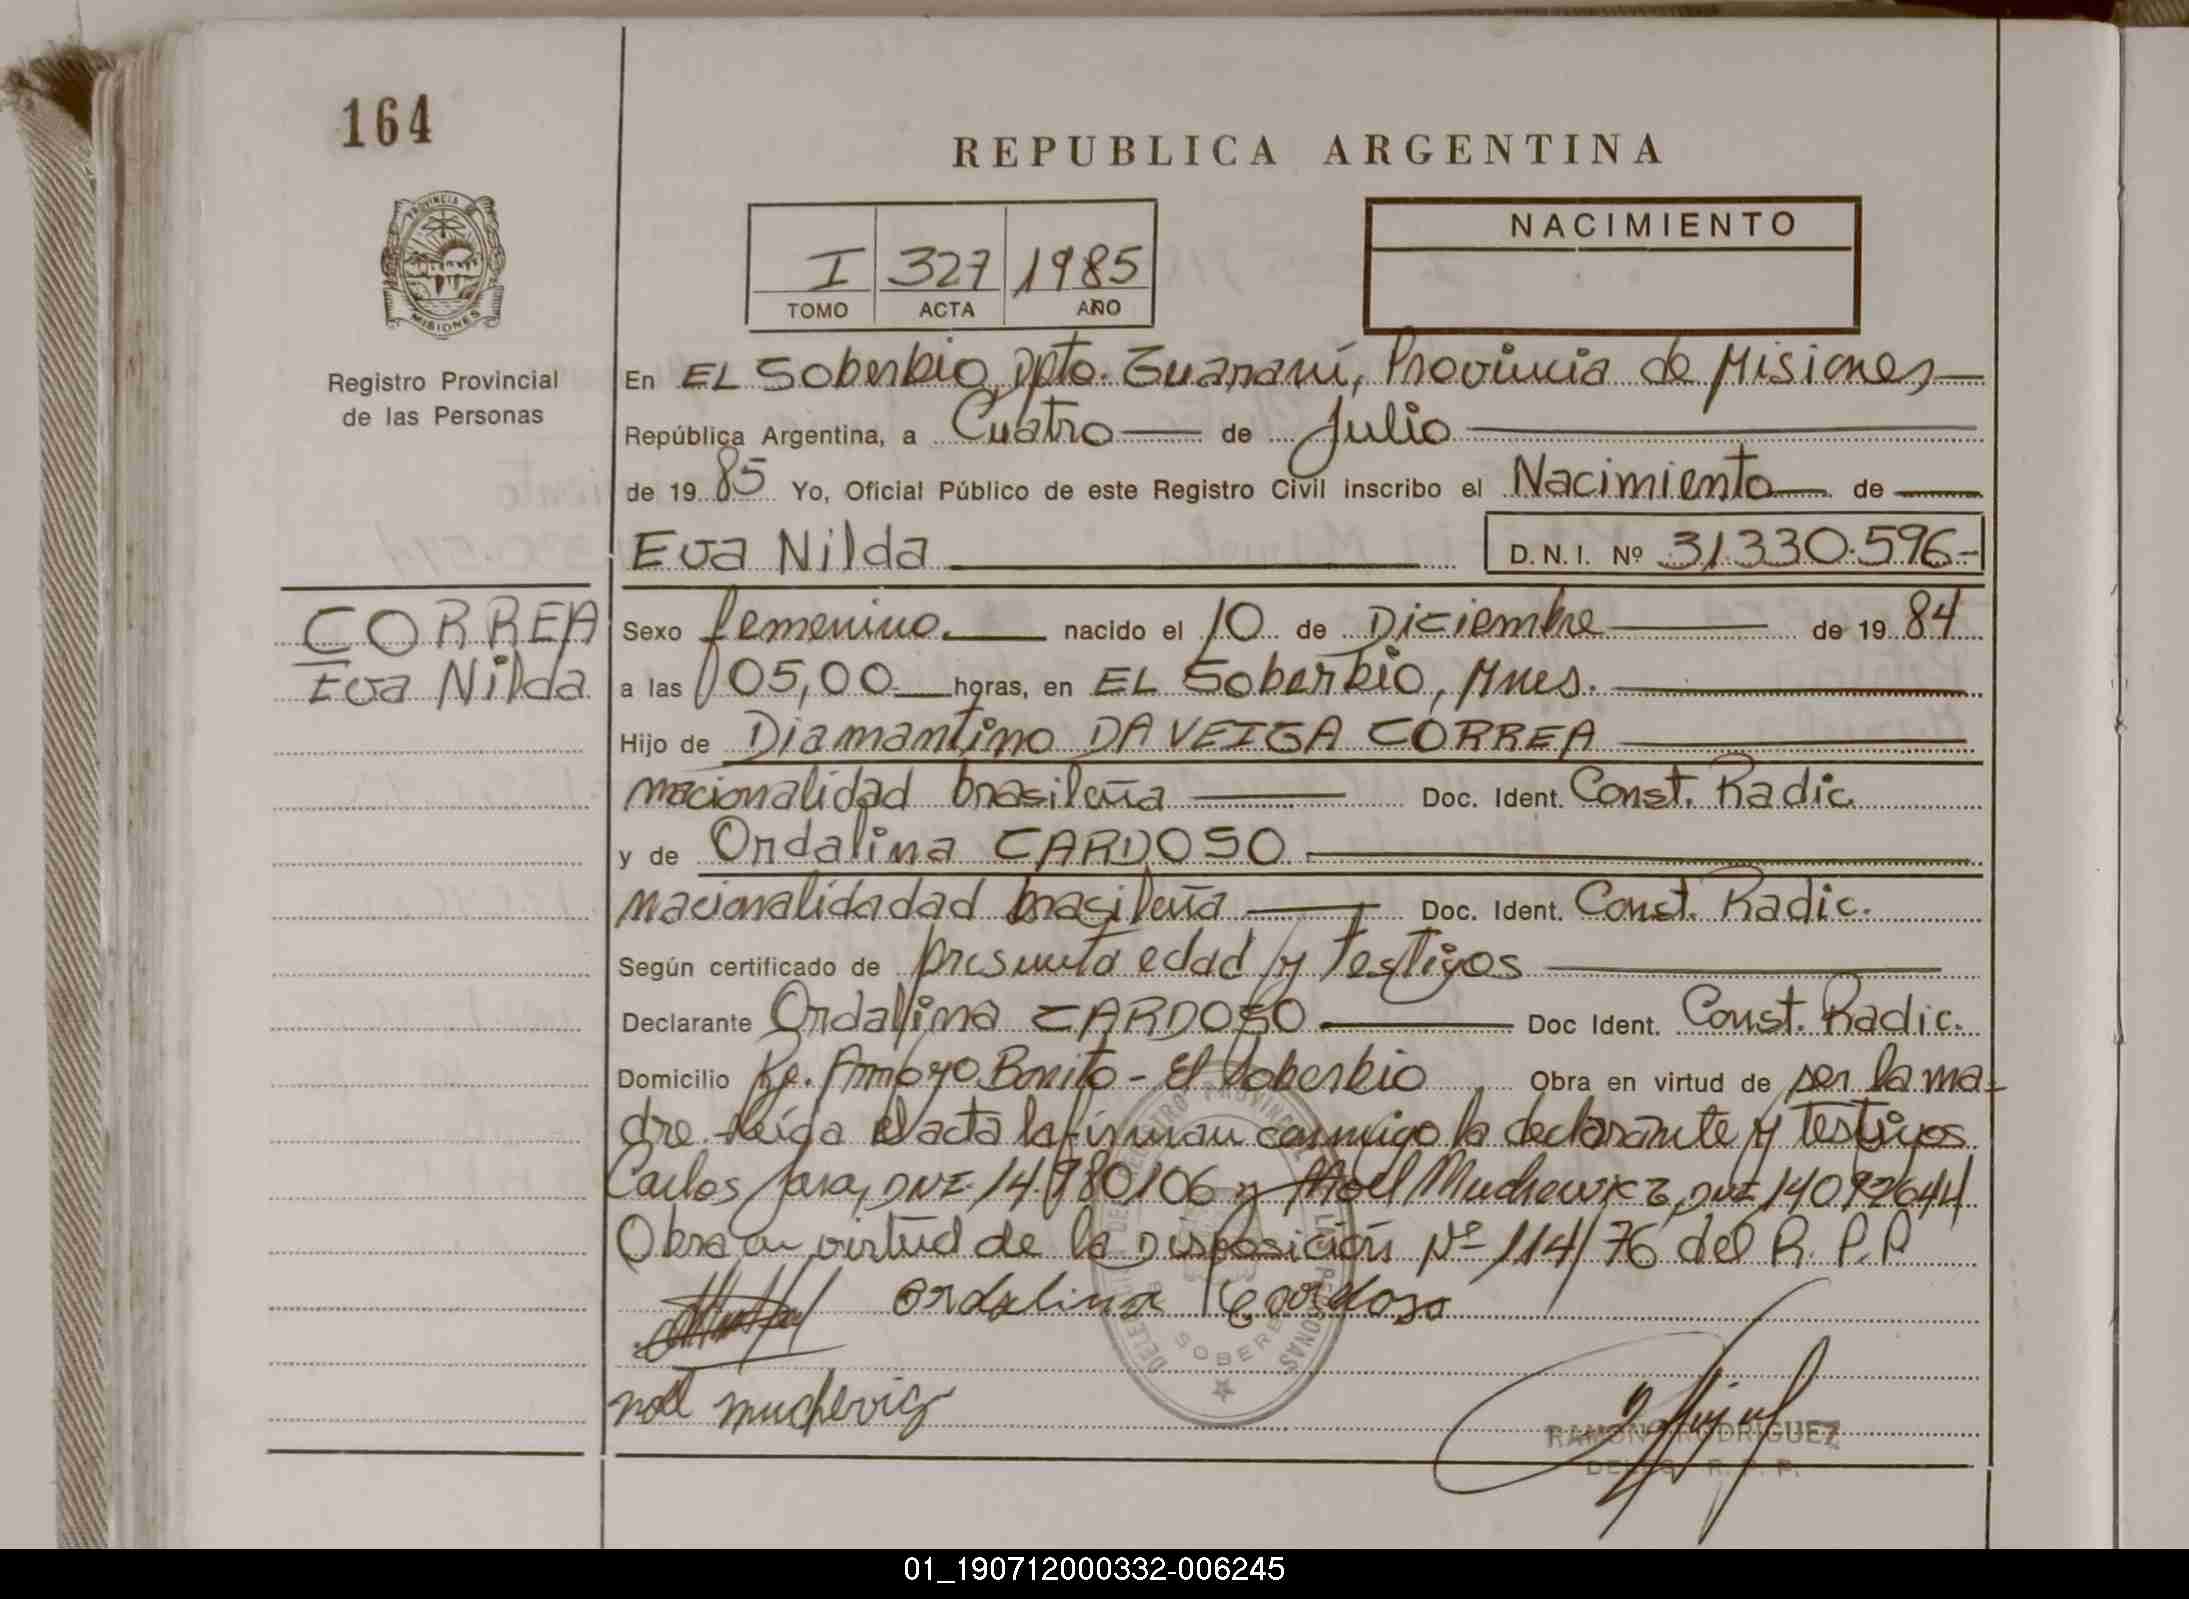 164
REPUBLICA ARGENTINA
PROVINCIA DE
MISIONES
Registro Provincial
de las Personas
I 327 1985
TOMO ACTA AÑO
NACIMIENTO
En EL Soberbio, Dpto. Guaraní, Provincia de Misiones
República Argentina, a Cuatro de Julio
de 1985 Yo, Oficial Público de este Registro Civil inscribo el Nacimiento de
Eva Nilda D.N.I. Nº 31.330.596-
CORREA
Eva Nilda
Sexo femenino. nacido el 10 de Diciembre de 1984
a las 05,00 horas, en EL Soberbio, Mnes.
Hijo de Diamantino DA VEIGA CORREA
nacionalidad brasileña Doc. Ident. Const. Radic.
y de Ordalina CARDOSO
nacionalidadad brasileña Doc. Ident. Const. Radic.
Según certificado de presunta edad y Testigos
Declarante Ordalina CARDOSO Doc Ident. Const. Radic.
Domicilio Kg. Arroyo Bonito - El Soberbio Obra en virtud de ser la ma-
dre. Leída el acta la firman conmigo la declarante y testigos
Carlos Jara, DNI. 14.980106 y Noel Muchewicz, DNI 14092644
Obra en virtud de la Disposición Nº 114/76 del R. P. P
Ordalina Cardoso
noel mucheviz
RAMON RODRIGUEZ
DELEG. R. P. P.
01_190712000332-006245